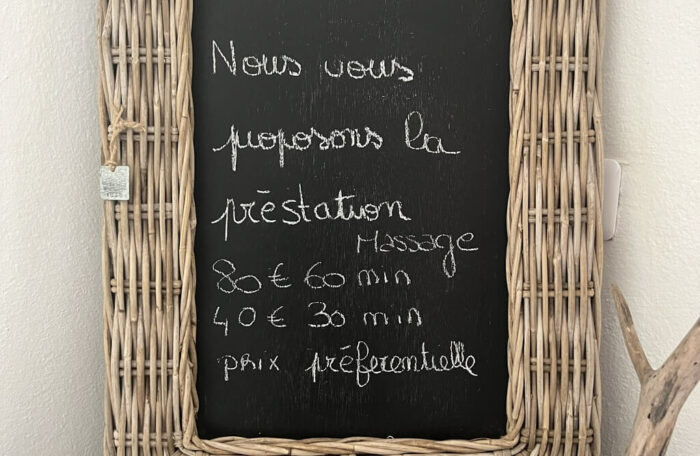 Nous vous
proposons la
préstation
Massage
80€ 60 min
40€ 30 min
prix préferentielle